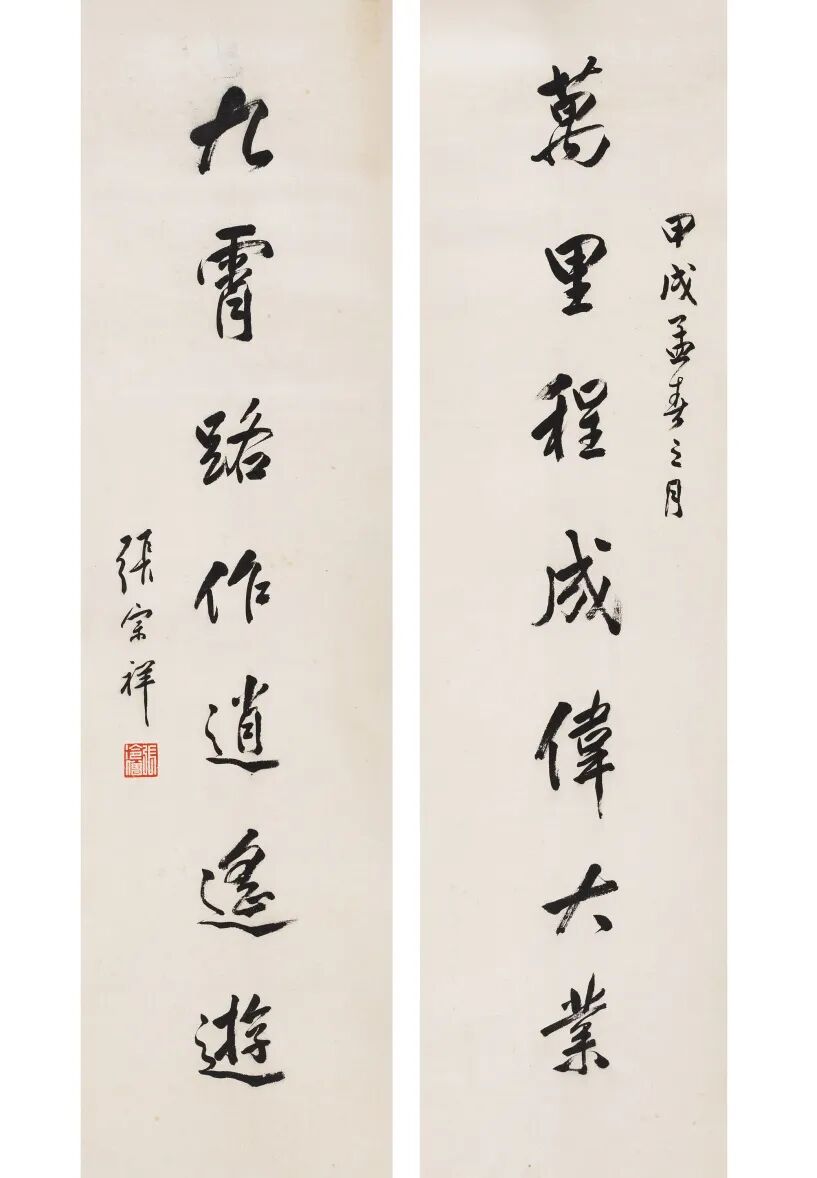 甲戌孟春之月
萬里程成偉大業
九霄路作逍遙遊
張宗祥